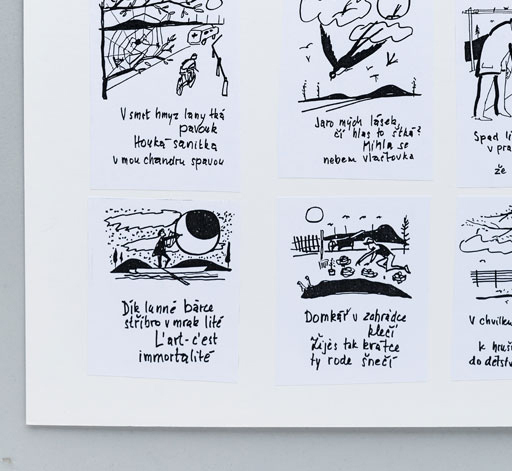 V smrt hmyz lany tká
pavouk
Houká sanitka
v mou chandru spavou
Jaro mých lásek,
čí hlas to štká?
Mihla se
nebem vlaštovka
Spad
v pra
že
Dík lunné bárce
stříbro v mrak lité
L'art-c'est
immortalité
Domkář v zahrádce
klečí
Žiješ tak krátce
ty rode šnečí
V chvilku
k hruš
do dětst